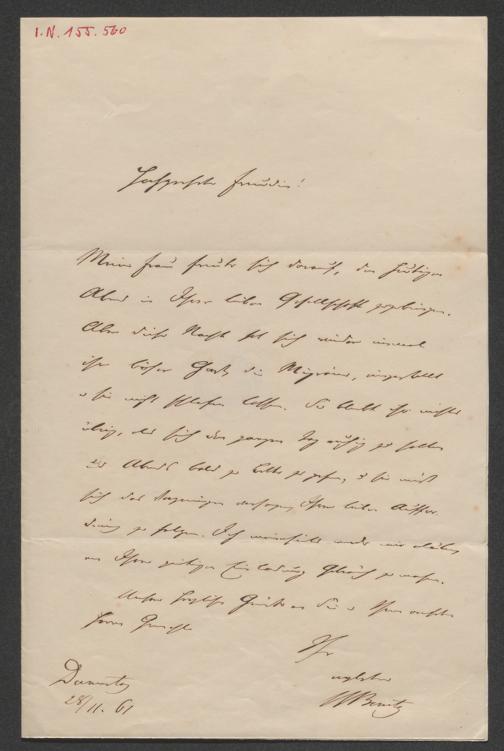 I.N. 155.560
Hochgeehrte Freundin!
Meine Frau freute sich darauf, den heutigen
Abend in Ihrer lieben Gesellschaft zuzubringen.
Aber diese Nacht hat sich wieder einmal
ihr böser Gast, die Migräne, eingestellt
u sie nicht schlafen lassen. Es bleibt ihr nichts
übrig, als sich den ganzen Tag ruhig zu halten
und Abends bald zu Bette zu gehen, u sie muß
sich das Vergnügen versagen, Ihrer lieben Auffor-
derung zu folgen. Ich
von Ihrer gütigen Einladung Gebrauch zu machen.
Unsere herzliche Grüße an Sie u Ihren verehrten
Herrn Gemahl
Ihr
ergebener
Donnerstag
28/11. 61